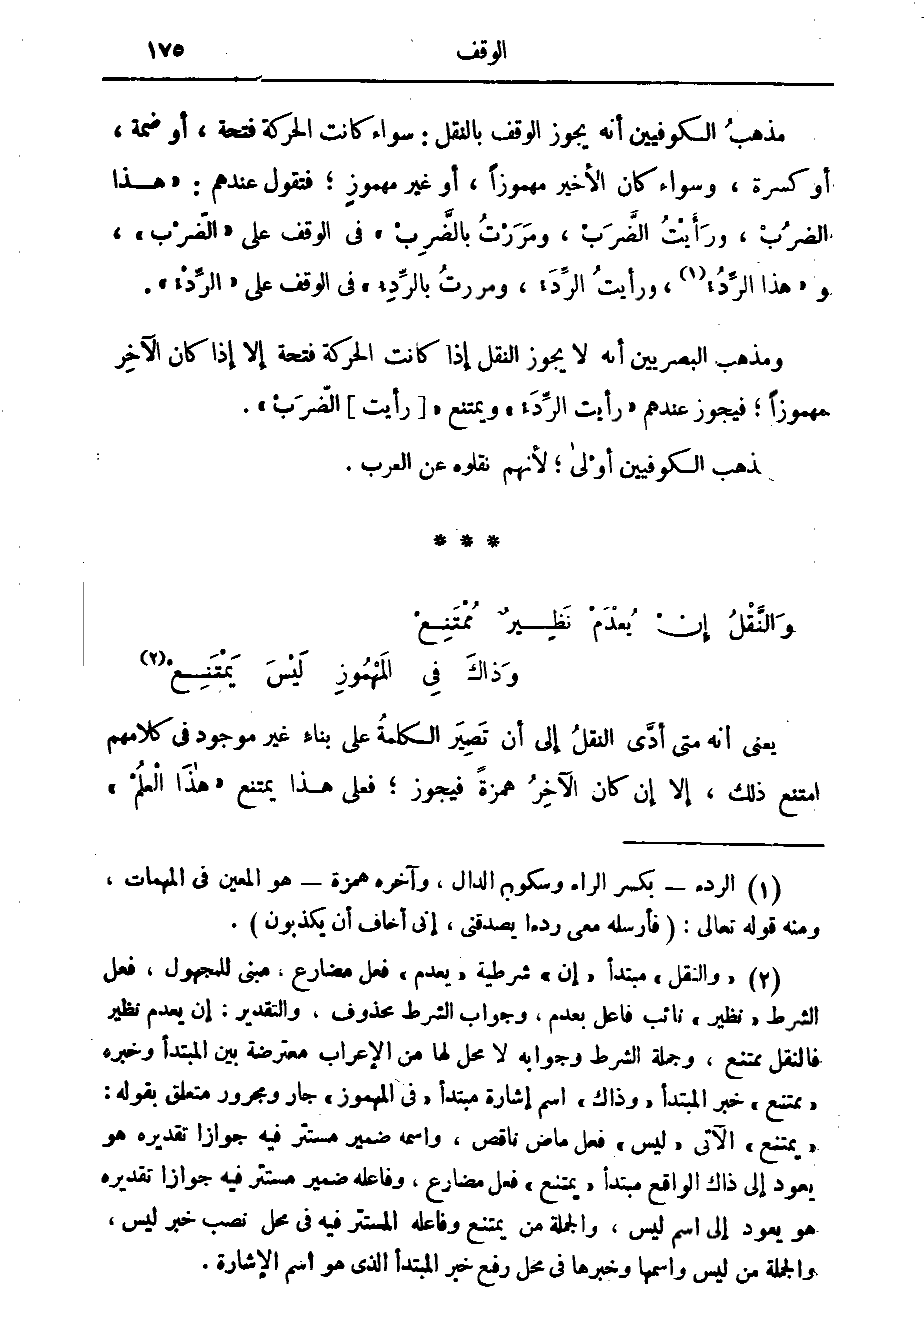 الوقف ١٧٥
مذهبُ الكوفيين أنه يجوز الوقف بالنقل : سواء كانت الحركة فتحة ، أو ضمة ،
أو كسرة ، وسواء كان الأخير مهموزاً ، أو غير مهموزٍ ؛ فتقول عندهم : « هـذا
الضرُبْ ، ورَأَيْتُ الضَّرَبْ ، ومَرَرْتُ بالضَّرِبْ » فى الوقف على « الضَّرْب » ،
و « هذا الرِّدُءْ(١) ، ورأيتُ الرِّدَءْ ، ومررتُ بالرِّدِءْ » فى الوقف على « الرِّدْء » .
ومذهب البصريين أنه لا يجوز النقل إذا كانت الحركة فتحة إلا إذا كان الآخِر
مهموزاً ؛ فيجوز عندهم « رأيت الرِّدَءْ » ويمتنع « [ رأيت ] الضَّرَبْ » .
ذهب الكوفيين أوْلىٰ ؛ لأنهم نقلوه عن العرب .
* * *
وَالنَّقْلُ إِنْ يُعْدَمْ نَظِيرٌ مُمْتَنِعْ
وَذَاكَ فِى الْمَهْمُوزِ لَيْسَ يَمْتَنِعْ(٢)
يعنى أنه متى أدَّى النقلُ إلى أن تَصِيَر الكلمةُ على بناء غير موجود فى كلامهم
امتنع ذلك ، إلا إن كان الآخِرُ همزةً فيجوز ؛ فعلى هـذا يمتنع « هٰذَا الْعِلُمْ »
(١) الردء – بكسر الراء وسكون الدال ، وآخره همزة – هو المعين فى المهمات ،
ومنه قوله تعالى : ( فأرسله معى ردءا يصدقنى ، إنى أخاف أن يكذبون ) .
(٢) « والنقل » مبتدأ « إن » شرطية « يعدم » فعل مضارع ، مبنى للمجهول ، فعل
الشرط « نظير » نائب فاعل بعدم ، وجواب الشرط محذوف ، والتقدير : إن يعدم نظير
فالنقل ممتنع ، وجملة الشرط وجوابه لا محل لها من الإعراب معترضة بين المبتدأ وخبره
« ممتنع » خبر المبتدأ « وذاك » اسم إشارة مبتدأ « فى المهموز » جار ومجرور متعلق بقوله :
« يمتنع » الآتى « ليس » فعل ماض ناقص ، واسمه ضمير مستتر فيه جوازا تقديره هو
يعود إلى ذاك الواقع مبتدأ « يمتنع » فعل مضارع ، وفاعله ضمير مستتر فيه جوازا تقديره
هو يعود إلى اسم ليس ، والجملة من يمتنع وفاعله المستتر فيه فى محل نصب خبر ليس ،
والجملة من ليس واسمها وخبرها فى محل رفع خبر المبتدأ الذى هو اسم الإشارة .